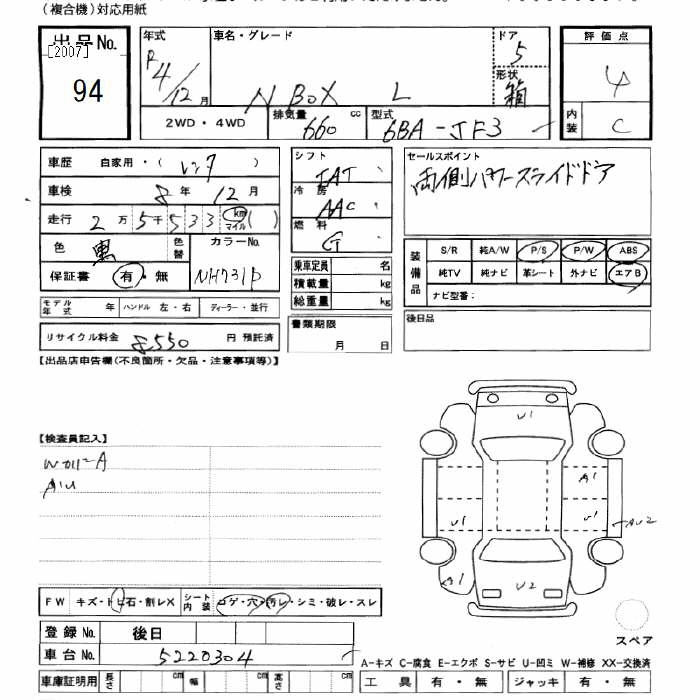 (複合機)対応用紙
出品No.
[2007]
94
年式
R4/12月
車名・グレード
N BOX L
ドア
5
形状
箱
評価点
4
内装
C
2WD・4WD
排気量 660 cc
型式 6BA-JF3
車歴 自家用・(レンタ)
車検 8年 12月
走行 2万5千533 km マイル ( )
色 黒 色替
カラーNo. NH731P
保証書 有・無
モデル年式 年 ハンドル 左・右 ディーラー・並行
リサイクル料金 8550 円 預託済
シフト
IAT
冷房
AAC
燃料
G
乗車定員 名
積載量 kg
総重量 kg
書類期限
月 日
セールスポイント
両側パワースライドドア
装備品
S/R 純A/W P/S P/W ABS
純TV 純ナビ 革シート 外ナビ エアB
ナビ型番:
後日品
【出品店申告欄(不良箇所・欠品・注意事項等)】
【検査員記入】
A1U
U1
A1
U1
U1
AU2
A1
U2
スペア
FW キズ・トビ石・割レX
シート内装 コゲ・穴・汚レ・シミ・破レ・スレ
登録No. 後日
車台No. 5220304
車庫証明用 長さ cm 幅 cm 高さ cm
A-キズ C-腐食 E-エクボ S-サビ U-凹ミ W-補修 XX-交換済
工具 有・無 ジャッキ 有・無